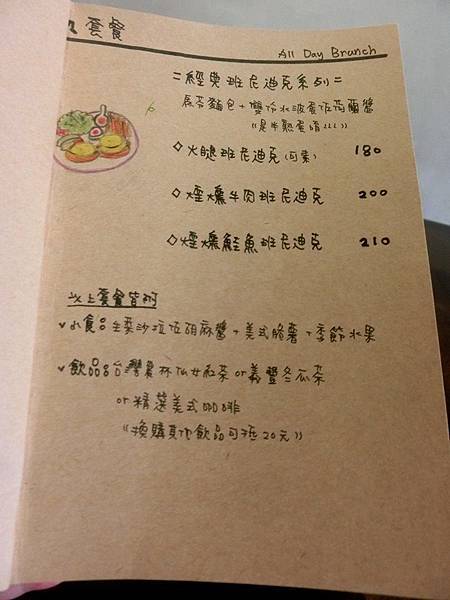 套餐
All Day Brunch
=經典班尼迪克系列=
麵包+雙份水波蛋佐荷蘭醬
"是半熟蛋唷!!!"
◇火腿班尼迪克(可素) 180
◇煙燻牛肉班尼迪克 200
◇煙燻鮭魚班尼迪克 210
以上套餐皆附
食品 生菜沙拉佐胡麻醬+美式脆薯+季節水果
飲品 台灣農林仙女紅茶 or 義豐冬瓜茶
or 精選美式咖啡
"換購其他飲品可抵20元"